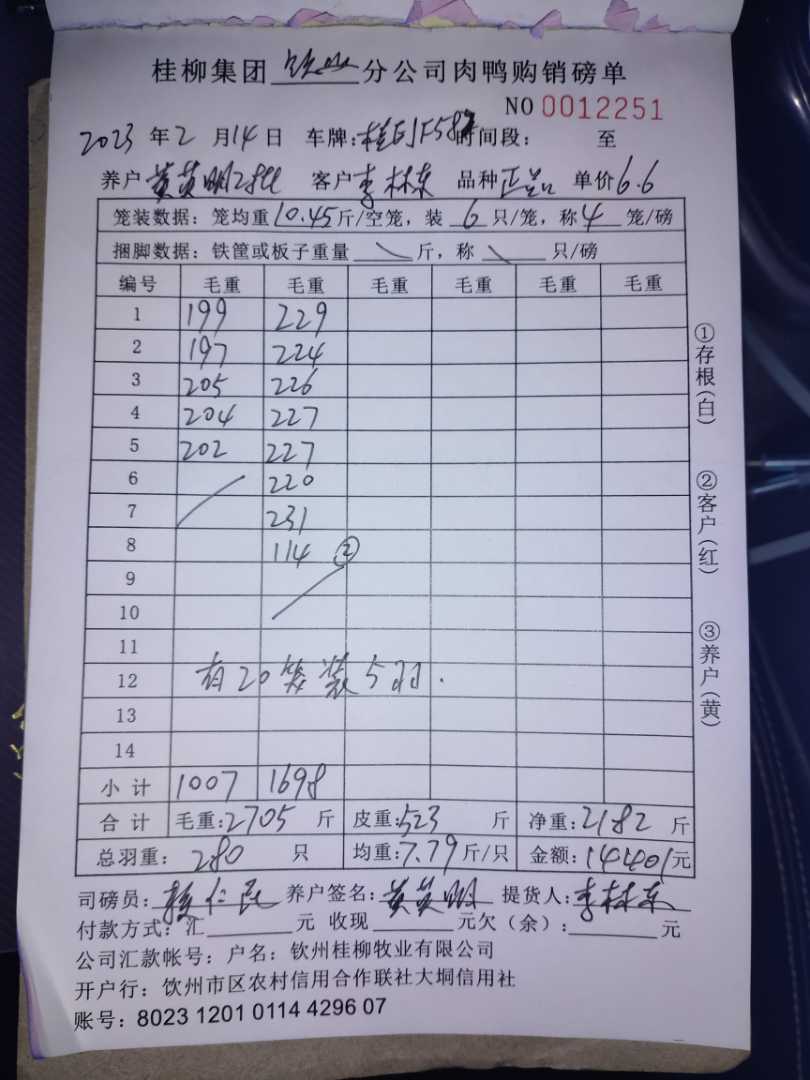 桂柳集团 钦州 分公司肉鸭购销磅单
NO 0012251
2023 年 2 月 14 日 车牌: 时间段: 至
养户 黄英明 客户 李林东 品种 单价 6.6
笼装数据: 笼均重 10.45 斤/空笼, 装 6 只/笼, 称 4 笼/磅
捆脚数据: 铁筐或板子重量 斤, 称 只/磅
编号 毛重 毛重 毛重 毛重 毛重 毛重
1 199 229
2 197 224
3 205 226
4 204 227
5 202 227
6 220
7 231
8 114 ②
9
10
11
12 有20笼装5羽.
13
14
小计 1007 1698
合计 毛重: 2705 斤 皮重: 523 斤 净重: 2182 斤
总羽重: 280 只 均重: 7.79 斤/只 金额: 14401 元
司磅员: 养户签名: 黄英明 提货人: 李林东
付款方式: 汇 元 收现 元欠(余): 元
公司汇款帐号: 户名: 钦州桂柳牧业有限公司
开户行: 饮州市区农村信用合作联社大垌信用社
账号: 8023 1201 0114 4296 07
①存根(白)
②客户(红)
③养户(黄)